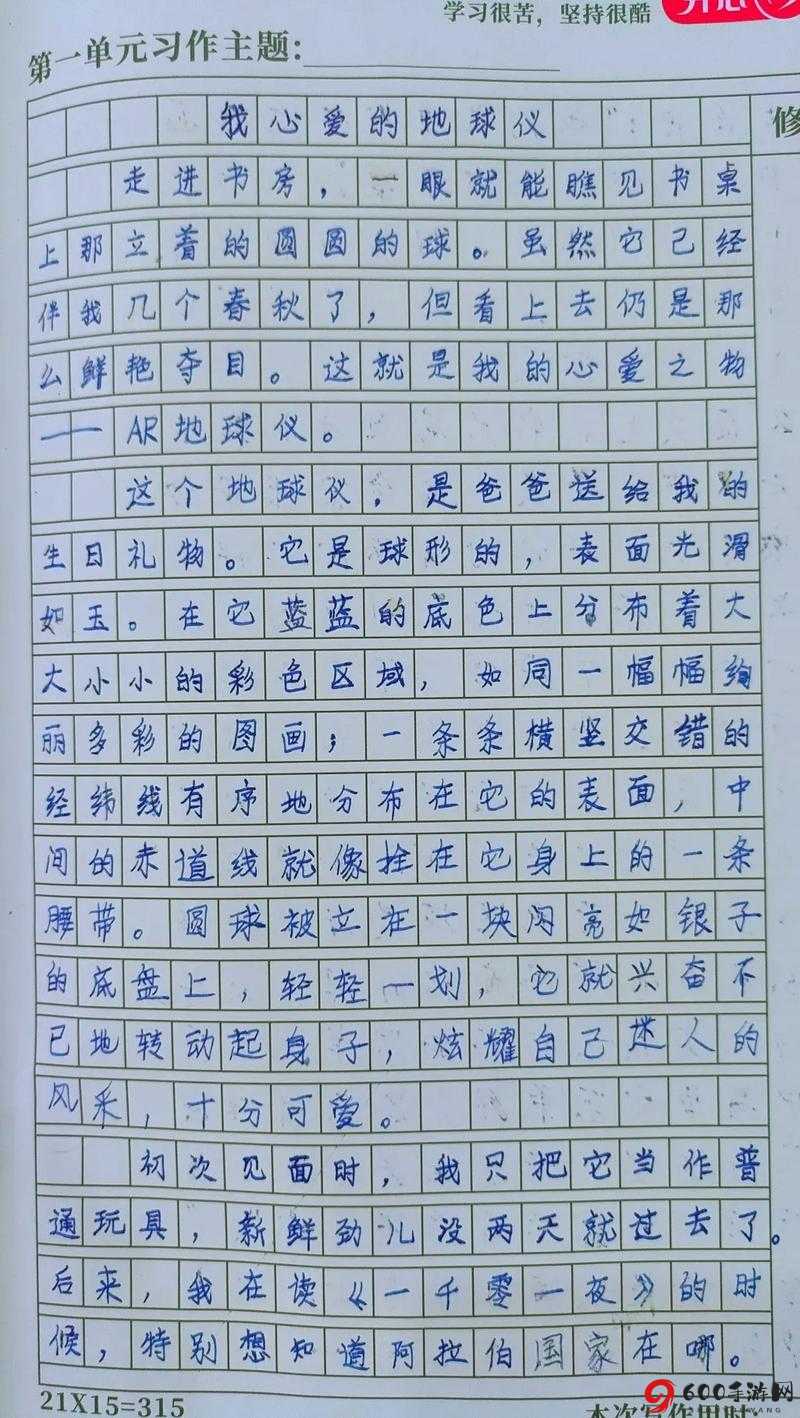 学习很苦，坚持很酷
第一单元习作主题：
我心爱的地球仪
走进书房，一眼就能瞧见书桌
上那立着的圆圆的球。虽然它已经
伴我几个春秋了，但看上去仍是那
么鲜艳夺目。这就是我的心爱之物
——AR地球仪。
这个地球仪，是爸爸送给我的
生日礼物。它是球形的，表面光滑
如玉。在它蓝蓝的底色上分布着大
大小小的彩色区域，如同一幅幅绚
丽多彩的图画；一条条横竖交错的
经纬线有序地分布在它的表面，中
间的赤道线就像拴在它身上的一条
腰带。圆球被立在一块闪亮如银子
的底盘上，轻轻一划，它就兴奋不
已地转动起身子，炫耀自己迷人的
风采，十分可爱。
初次见面时，我只把它当作普
通玩具，新鲜劲儿没两天就过去了。
后来，我在读《一千零一夜》的时
候，特别想知道阿拉伯国家在哪。
21X15=315
本次写作用时：
600手游网
修